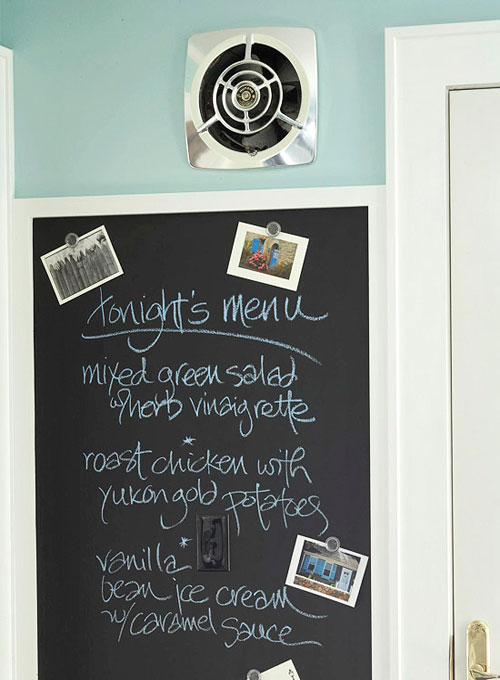 tonight's menu
mixed green salad
w/herb vinaigrette
*
roast chicken with
yukon gold potatoes
*
vanilla
bean ice cream
w/caramel sauce